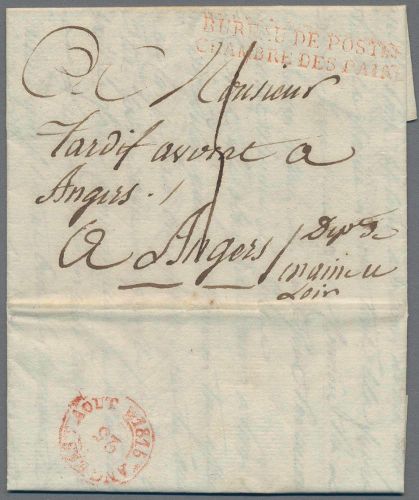 BUREAU DE POSTES
CHAMBRE DES PAIRS
A Monsieur
Tardif avocat a
Angers . /
A Angers / Dept de
maine u
Loir
AOUT 1815
25
ANGERS